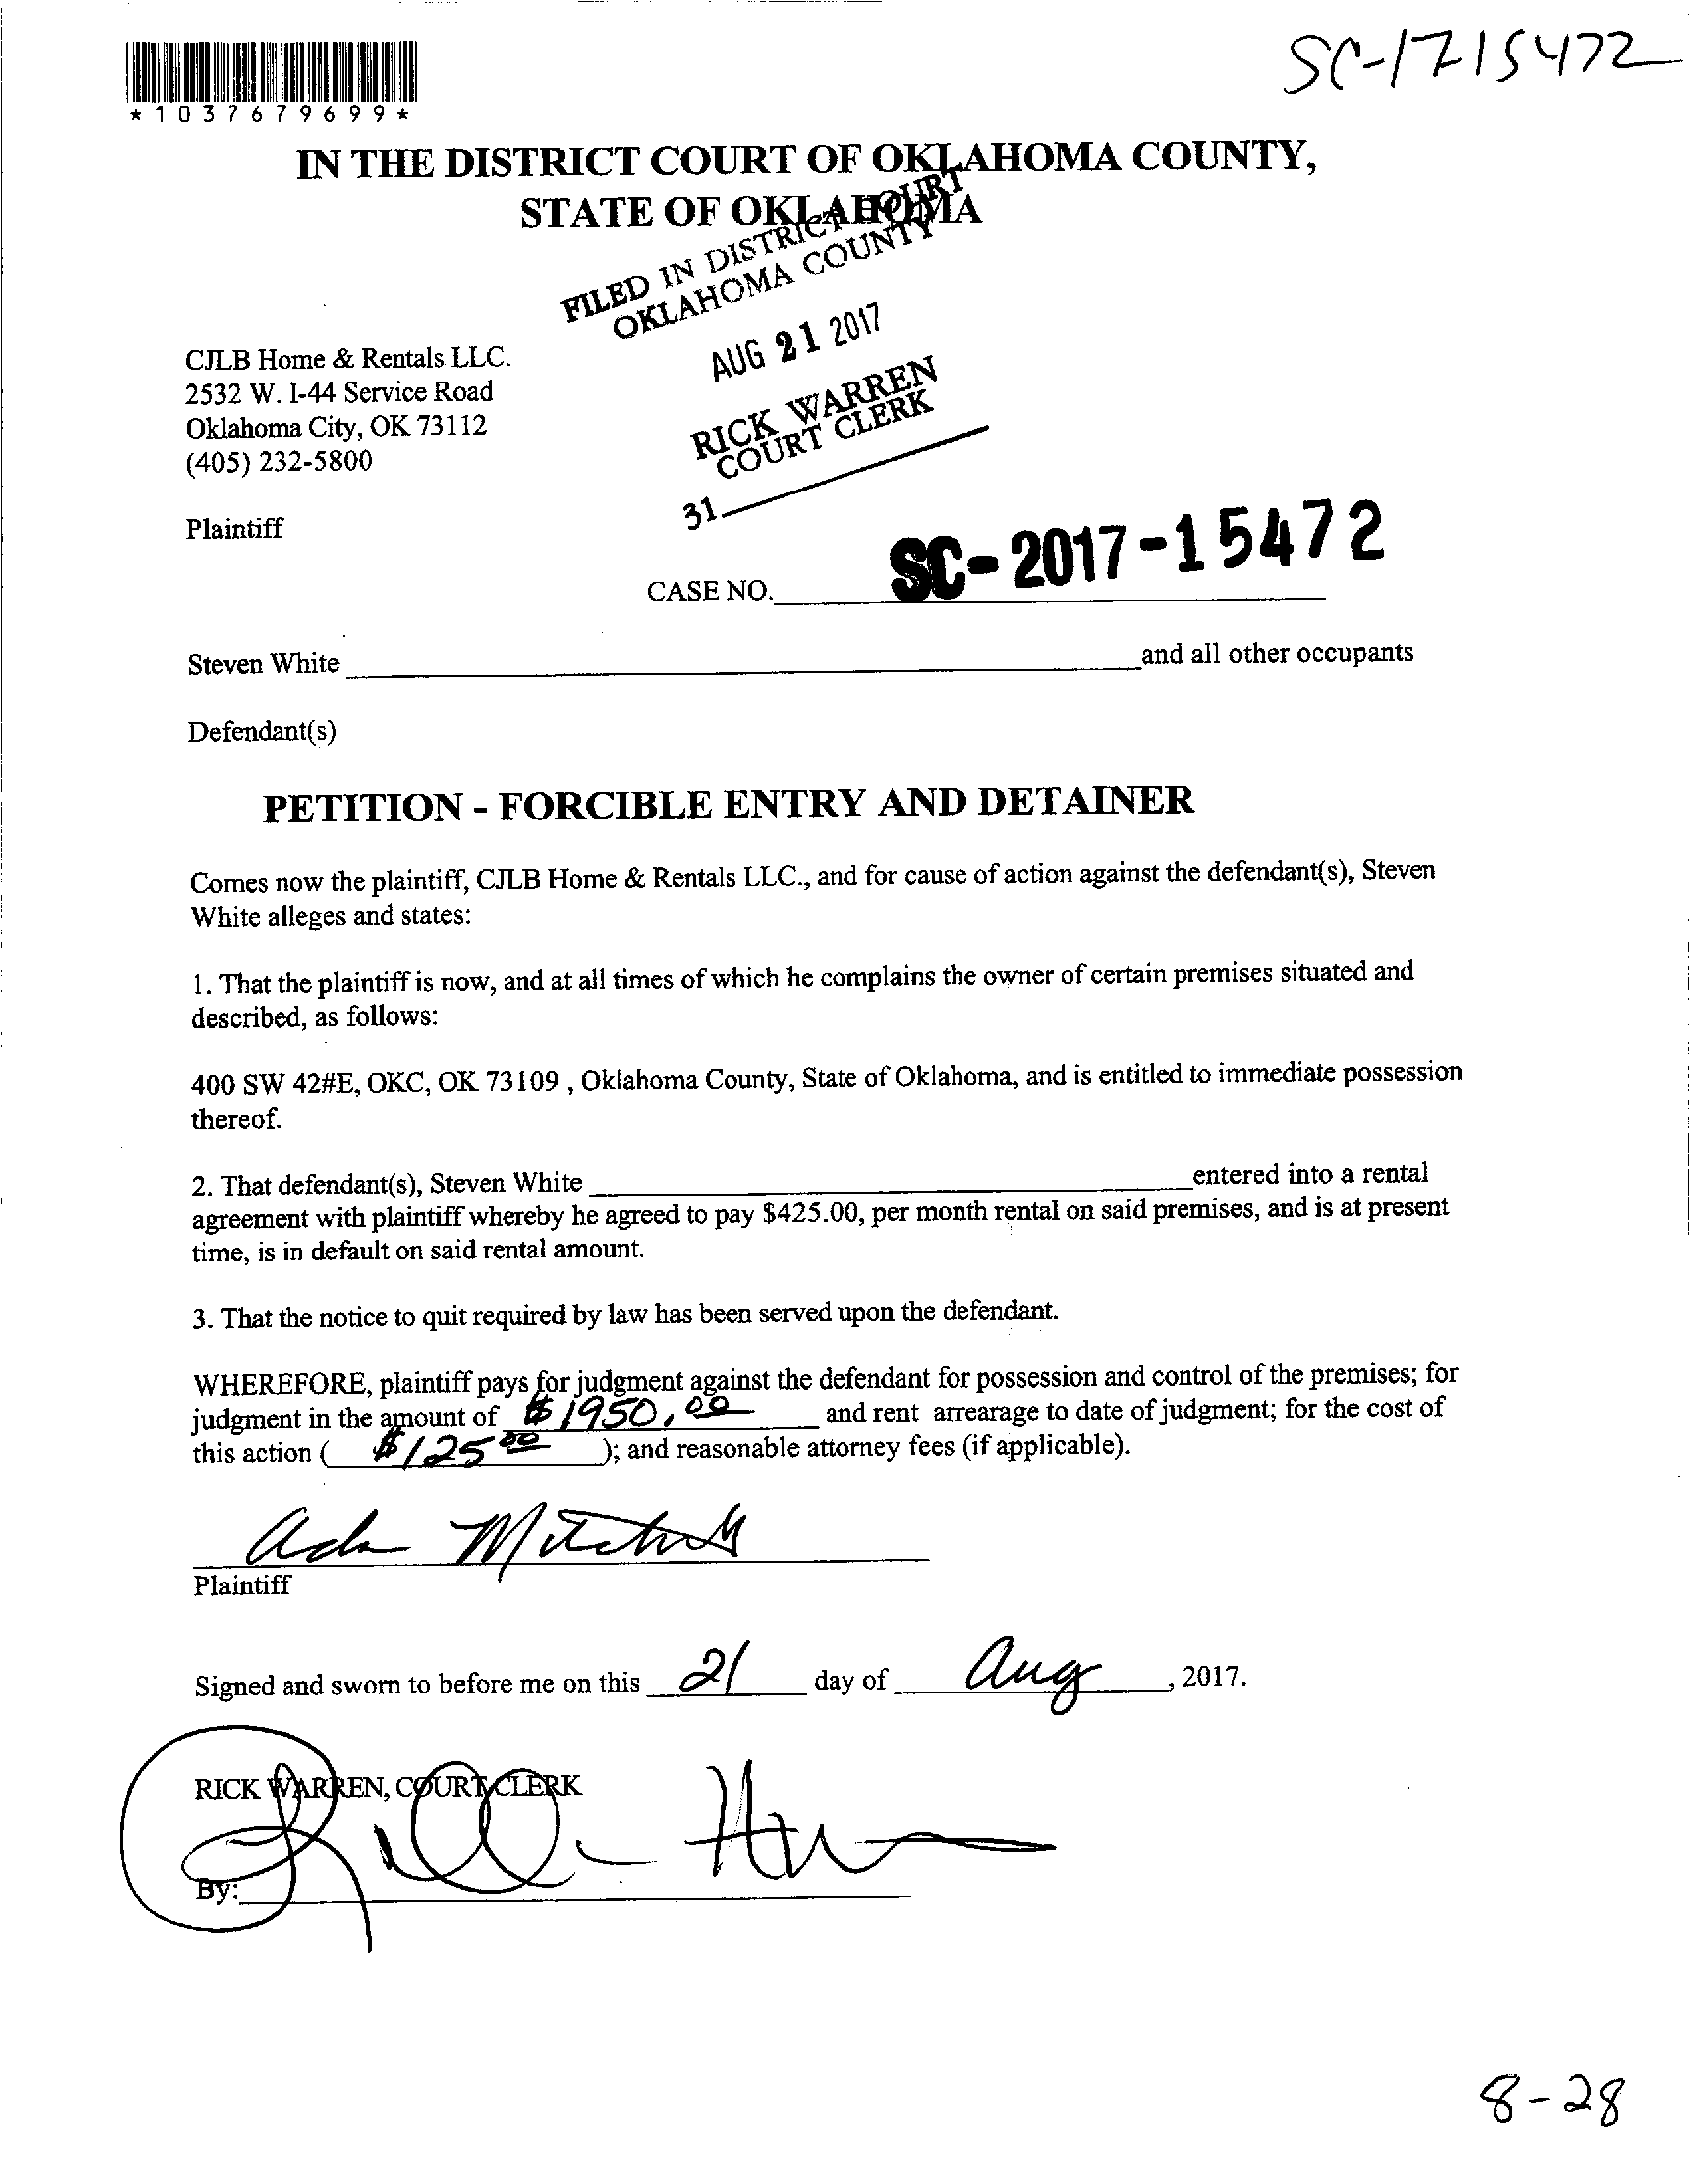 SC-1715472
*1037679699*
IN THE DISTRICT COURT OF OKLAHOMA COUNTY,
STATE OF OKLAHOMA
FILED IN DISTRICT COURT
OKLAHOMA COUNTY
AUG 21 2017
RICK WARREN
COURT CLERK
31
CJLB Home & Rentals LLC.
2532 W. I-44 Service Road
Oklahoma City, OK 73112
(405) 232-5800
Plaintiff
CASE NO. SC-2017-15472
Steven White and all other occupants
Defendant(s)
PETITION - FORCIBLE ENTRY AND DETAINER
Comes now the plaintiff, CJLB Home & Rentals LLC., and for cause of action against the defendant(s), Steven
White alleges and states:
1. That the plaintiff is now, and at all times of which he complains the owner of certain premises situated and
described, as follows:
400 SW 42#E, OKC, OK 73109 , Oklahoma County, State of Oklahoma, and is entitled to immediate possession
thereof.
2. That defendant(s), Steven White entered into a rental
agreement with plaintiff whereby he agreed to pay $425.00, per month rental on said premises, and is at present
time, is in default on said rental amount.
3. That the notice to quit required by law has been served upon the defendant.
WHEREFORE, plaintiff pays for judgment against the defendant for possession and control of the premises; for
judgment in the amount of $1950.00 and rent arrearage to date of judgment; for the cost of
this action ( $125 00 ); and reasonable attorney fees (if applicable).
Plaintiff
Signed and sworn to before me on this 21 day of Aug, 2017.
RICK WARREN, COURT CLERK
By:
8-28